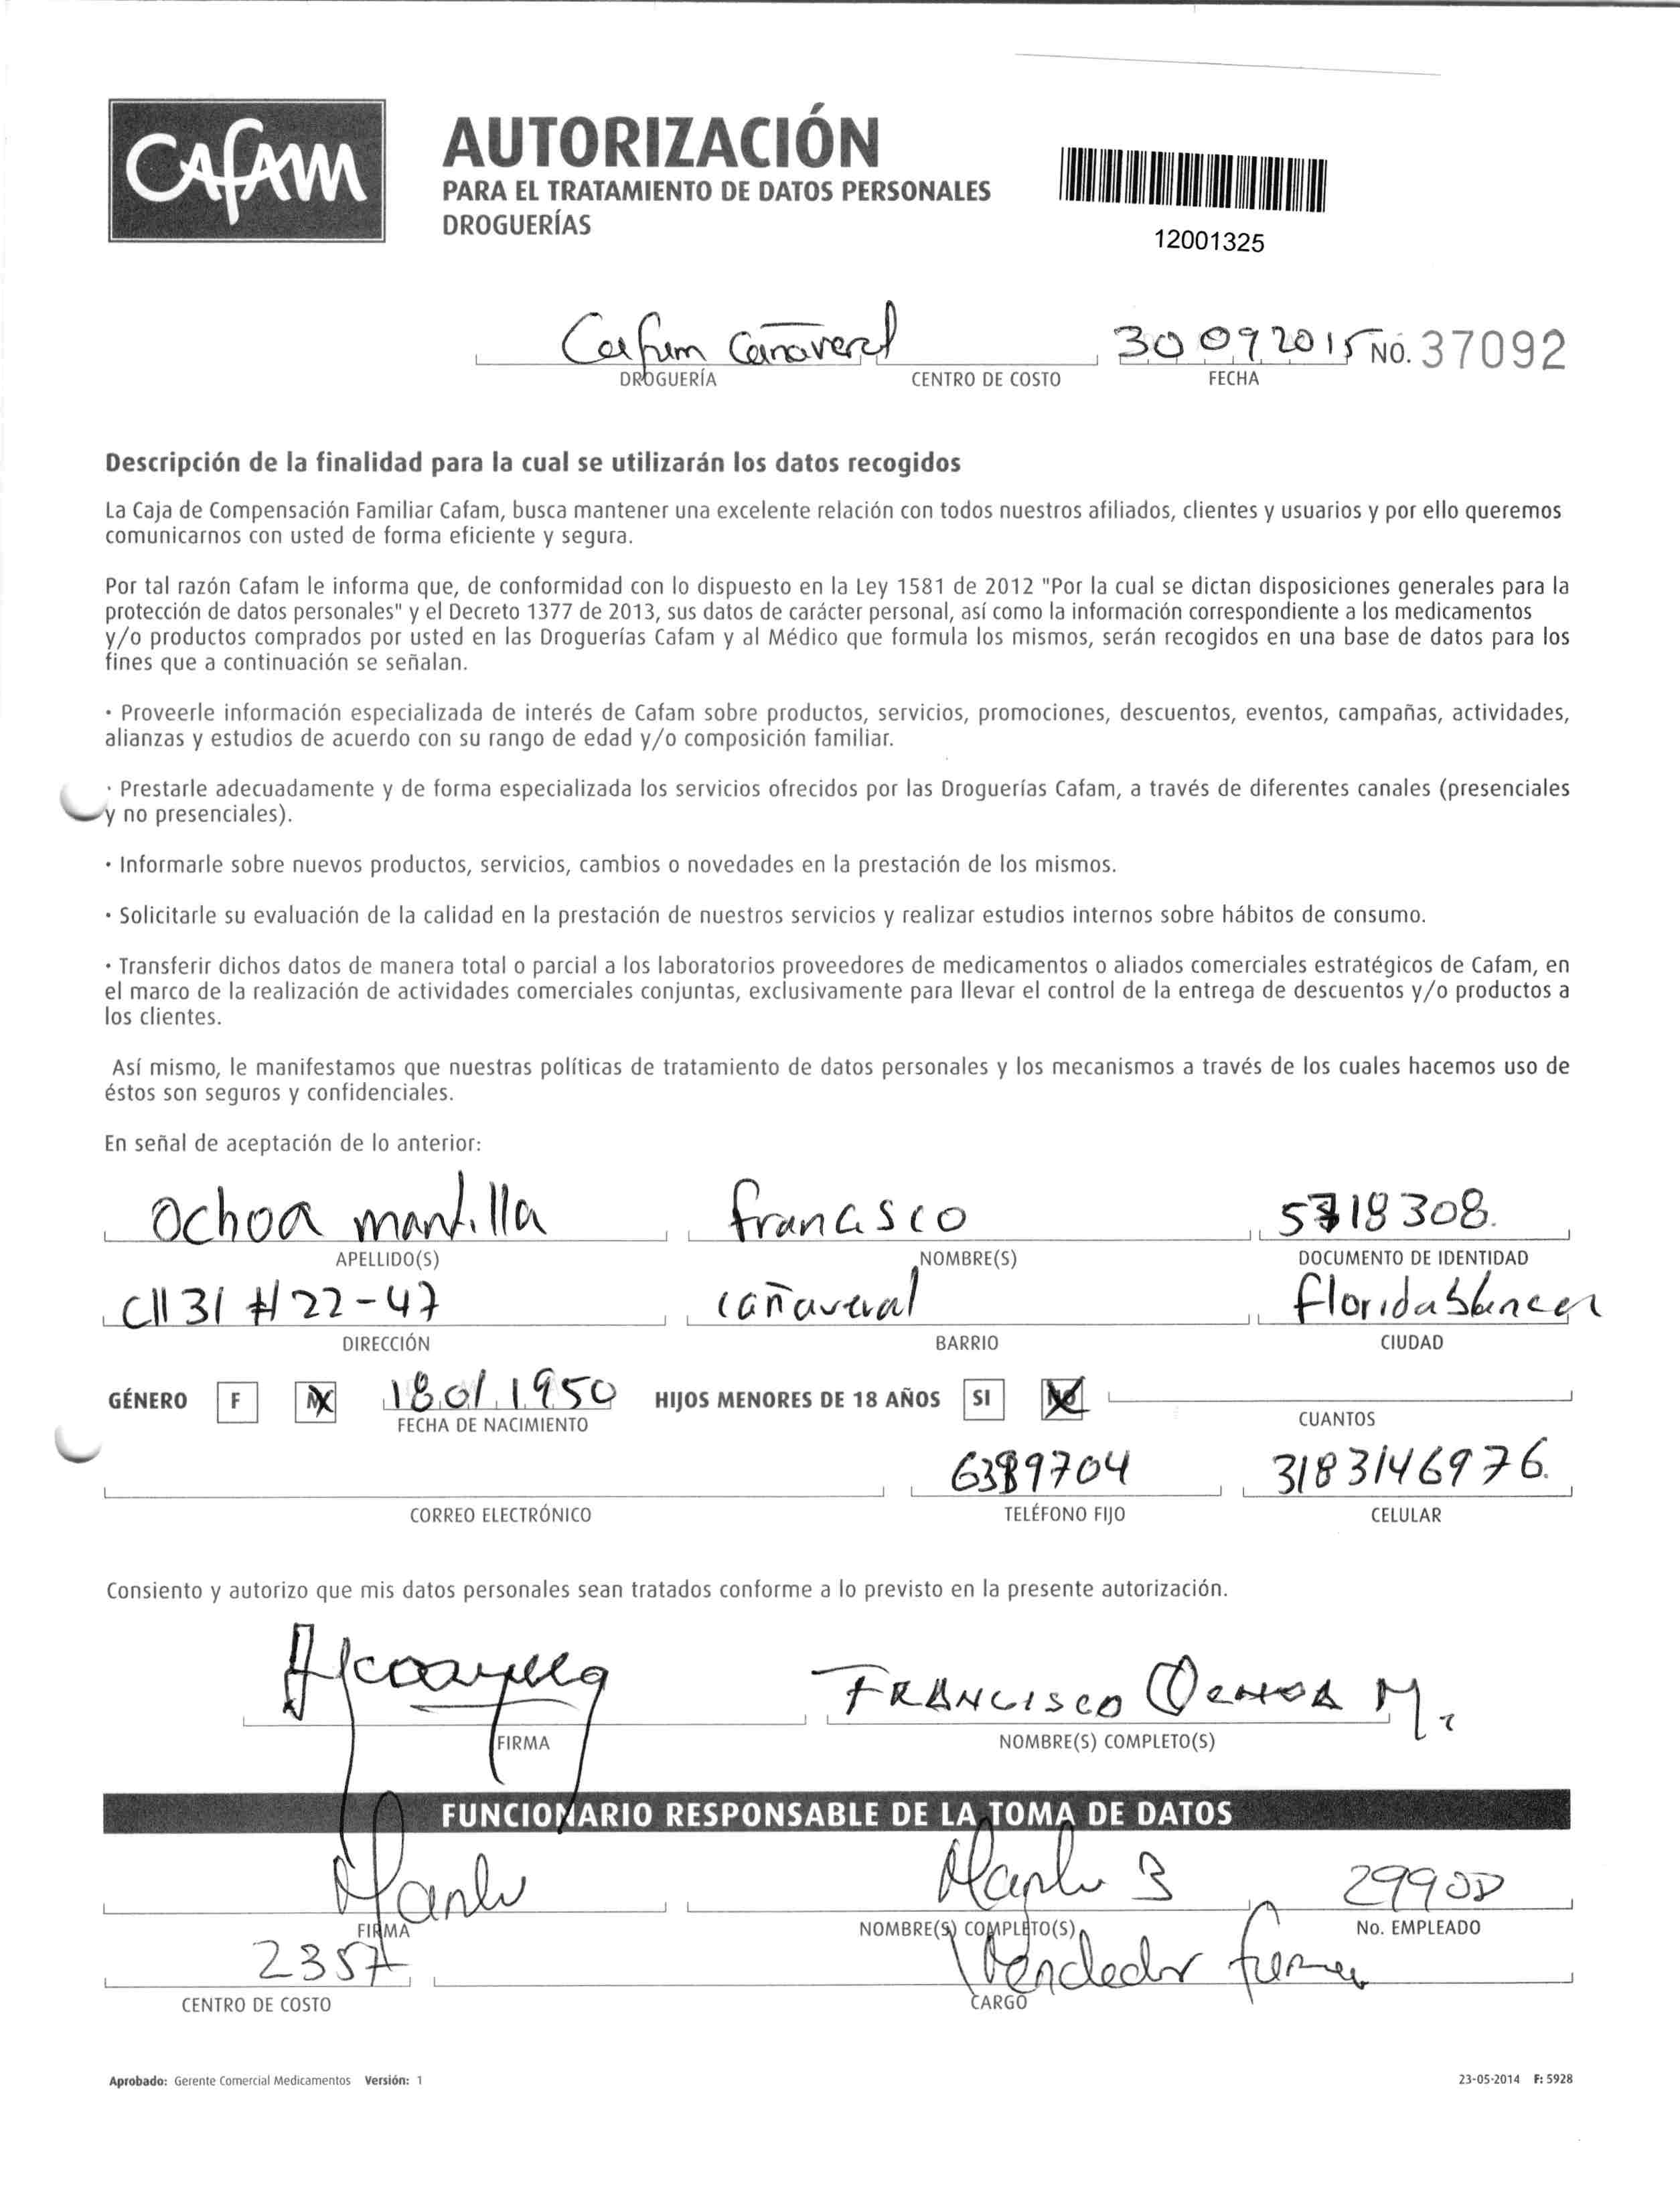 Cafam
AUTORIZACIÓN
PARA EL TRATAMIENTO DE DATOS PERSONALES
DROGUERÍAS
12001325
Cafam Cañaveral 30 09 2015 NO. 37092
DROGUERÍA CENTRO DE COSTO FECHA
Descripción de la finalidad para la cual se utilizarán los datos recogidos
La Caja de Compensación Familiar Cafam, busca mantener una excelente relación con todos nuestros afiliados, clientes y usuarios y por ello queremos
comunicarnos con usted de forma eficiente y segura.
Por tal razón Cafam le informa que, de conformidad con lo dispuesto en la Ley 1581 de 2012 "Por la cual se dictan disposiciones generales para la
protección de datos personales" y el Decreto 1377 de 2013, sus datos de carácter personal, así como la información correspondiente a los medicamentos
y/o productos comprados por usted en las Droguerías Cafam y al Médico que formula los mismos, serán recogidos en una base de datos para los
fines que a continuación se señalan.
• Proveerle información especializada de interés de Cafam sobre productos, servicios, promociones, descuentos, eventos, campañas, actividades,
alianzas y estudios de acuerdo con su rango de edad y/o composición familiar.
• Prestarle adecuadamente y de forma especializada los servicios ofrecidos por las Droguerías Cafam, a través de diferentes canales (presenciales
y no presenciales).
• Informarle sobre nuevos productos, servicios, cambios o novedades en la prestación de los mismos.
• Solicitarle su evaluación de la calidad en la prestación de nuestros servicios y realizar estudios internos sobre hábitos de consumo.
• Transferir dichos datos de manera total o parcial a los laboratorios proveedores de medicamentos o aliados comerciales estratégicos de Cafam, en
el marco de la realización de actividades comerciales conjuntas, exclusivamente para llevar el control de la entrega de descuentos y/o productos a
los clientes.
Así mismo, le manifestamos que nuestras políticas de tratamiento de datos personales y los mecanismos a través de los cuales hacemos uso de
éstos son seguros y confidenciales.
En señal de aceptación de lo anterior:
Ochoa mantilla francisco 5718308.
APELLIDO(S) NOMBRE(S) DOCUMENTO DE IDENTIDAD
Cll 31 # 22-47 cañaveral floridablanca
DIRECCIÓN BARRIO CIUDAD
GÉNERO F M 18 01 1950 HIJOS MENORES DE 18 AÑOS SI NO
FECHA DE NACIMIENTO CUANTOS
6389704 3183146976.
CORREO ELECTRÓNICO TELÉFONO FIJO CELULAR
Consiento y autorizo que mis datos personales sean tratados conforme a lo previsto en la presente autorización.
FRANCISCO OCHOA M.
FIRMA NOMBRE(S) COMPLETO(S)
FUNCIONARIO RESPONSABLE DE LA TOMA DE DATOS
29900
FIRMA NOMBRE(S) COMPLETO(S) No. EMPLEADO
2357 Vendedor
CENTRO DE COSTO CARGO
Aprobado: Gerente Comercial Medicamentos Versión: 1 23-05-2014 F: 5928